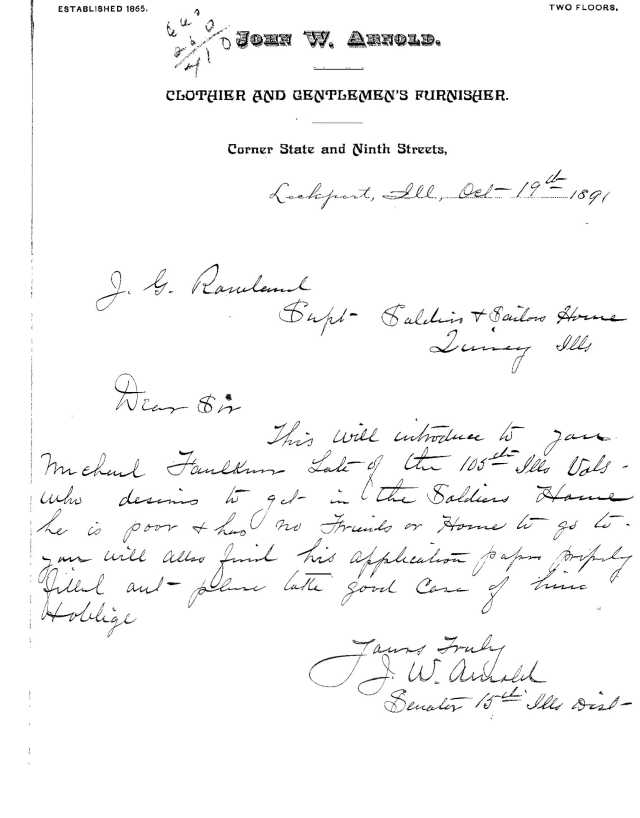 ESTABLISHED 1865.
TWO FLOORS.
JOHN W. ARNOLD.
CLOTHIER AND GENTLEMEN'S FURNISHER.
Corner State and Ninth Streets,
Lockport, Ill, Oct- 19th 1891
J. G. Rowland
Supt- Soldiers + Sailors Home
Quincy Ills
Dear Sir
This will introduce to you
Micheal Faulkner Late of the 105th Ills Vols -
who desires to get in the Soldiers Home
he is poor + has no Friends or Home to go to -
you will allso find his application papers properly
filled out - please take good Care of him
+ oblige
Yours Truly
J. W. Arnold
Senator 15th Ills Dist -